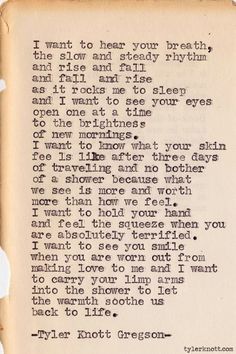 I want to hear your breath,
the slow and steady rhythm
and rise and fall
and fall  and rise
as it rocks me to sleep
and I want to see your eyes
open one at a time
to the brightness
of new mornings.
I want to know what your skin
fee ls like after three days
of traveling and no bother
of a shower because what
we see is more and worth
more than how we feel.
I want to hold your hand
and feel the squeeze when you
are absolutely terrified.
I want to see you smile
when you are worn out from
making love to me and I want
to carry your limp arms
into the shower to let
the warmth soothe us
back to life.
-Tyler Knott Gregson-
tylerknott.com